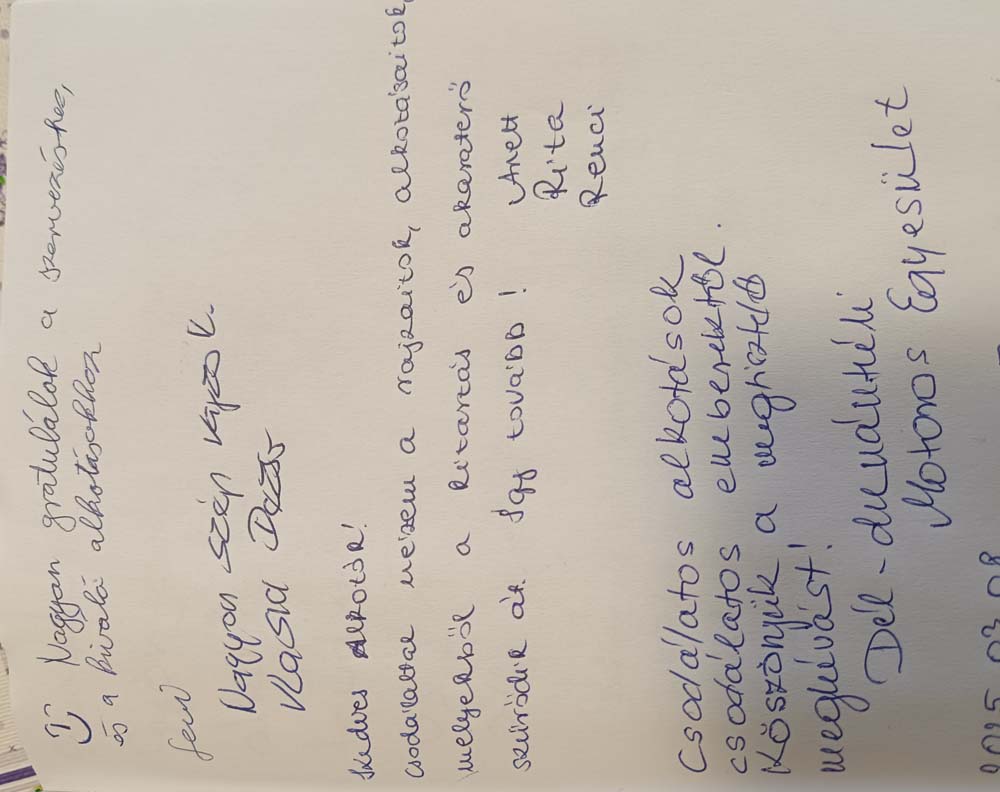 Nagyon gratulálok a szervezéshez,
és a kiváló alkotásokhoz
Jenő
Nagyon szép képek.
Vlasta
Kedves Alkotók!
csodálattal nézem a rajzaitok, alkotásaitok,
melyekből a kitartás és akaraterő
szűrődik át. Így tovább!
Anett
Rita
Renci
Csodálatos alkotások
csodálatos emberektől.
Köszönjük a megtisztelő
meghívást!
Dél-dunántúli
Motoros Egyesület